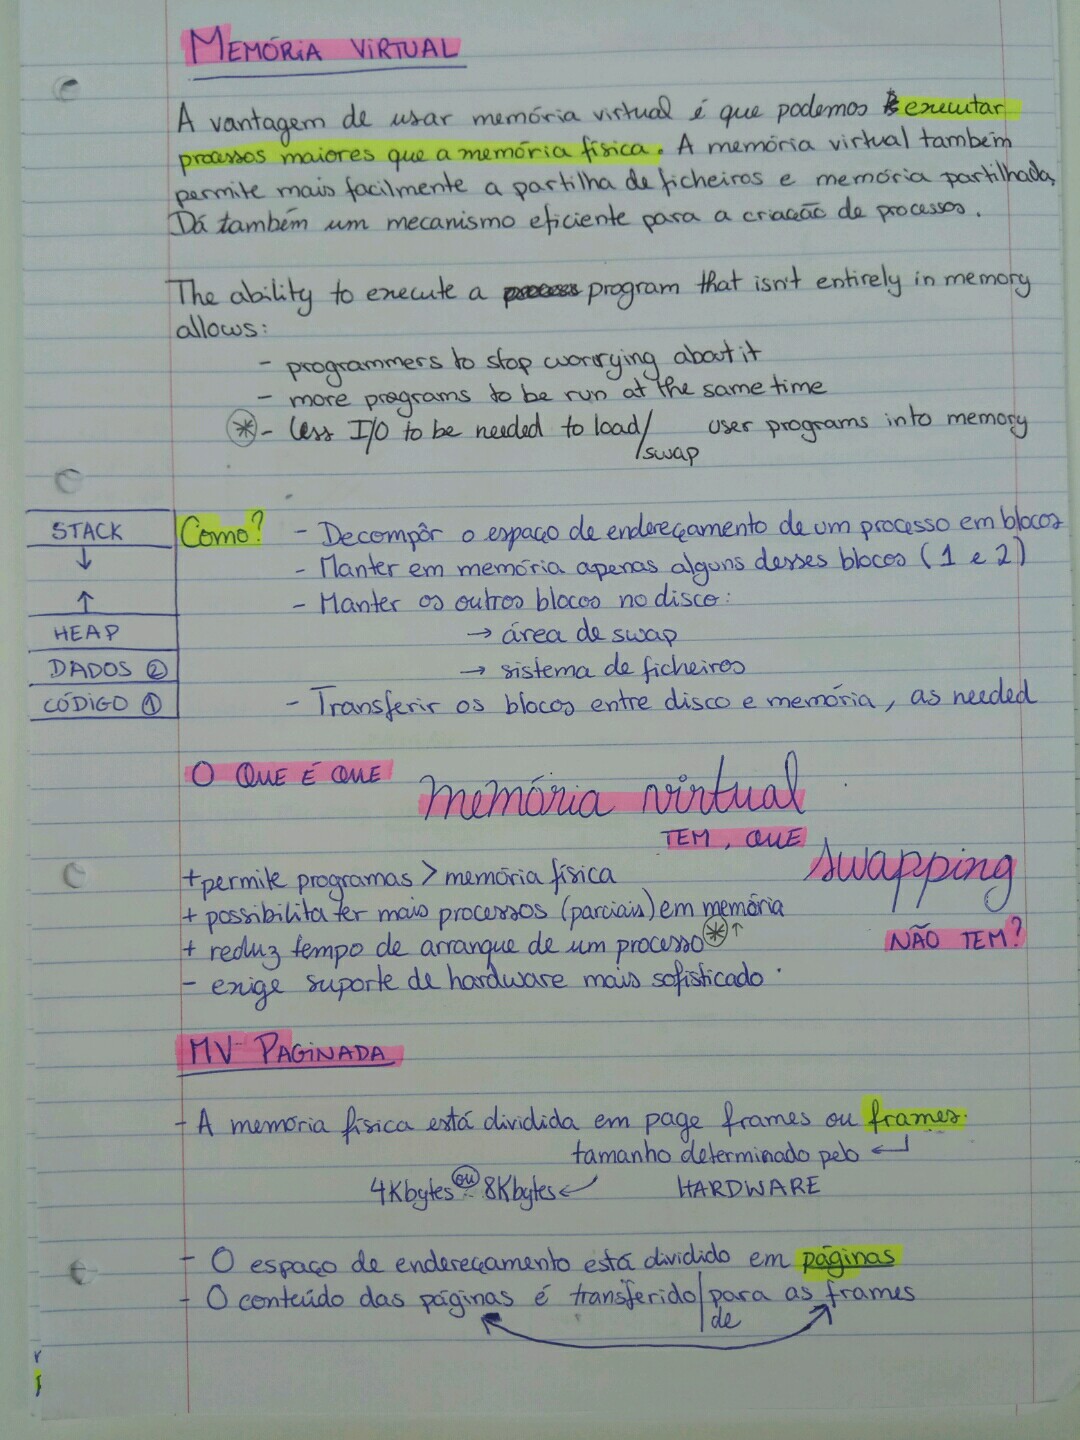 MEMÓRIA VIRTUAL
A vantagem de usar memória virtual é que podemos executar
processos maiores que a memória física. A memória virtual também
permite mais facilmente a partilha de ficheiros e memória partilhada,
Dá também um mecanismo eficiente para a criação de processos.
The ability to execute a process program that isn't entirely in memory
allows:
- programmers to stop worrying about it
- more programs to be run at the same time
* - less I/O to be needed to load/swap user programs into memory
STACK
↓
↑
HEAP
DADOS 2
CÓDIGO 1
Como? - Decompôr o espaço de endereçamento de um processo em blocos
- Manter em memória apenas alguns desses blocos (1 e 2)
- Manter os outros blocos no disco:
→ área de swap
→ sistema de ficheiros
- Transferir os blocos entre disco e memória, as needed
O QUE É QUE memória virtual
TEM, QUE swapping
NÃO TEM?
+ permite programas > memória física
+ possibilita ter mais processos (parciais) em memória
+ reduz tempo de arranque de um processo * ↑
- exige suporte de hardware mais sofisticado.
MV PAGINADA
- A memória física está dividida em page frames ou frames.
tamanho determinado pelo ↵
4Kbytes ou 8Kbytes ↙ HARDWARE
- O espaço de endereçamento está dividido em páginas
- O conteúdo das páginas é transferido para as frames
de